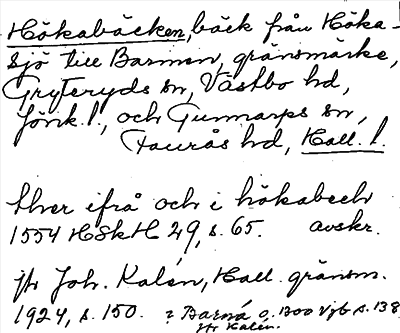 Hökabäcken, bäck från Höka-
sjö till Barmen, gränsmärke,
Gryteryds sn, Västbo hd,
Jönk. l., och Gunnarps sn,
Faurås hd, Hall. l.
ther ifrå och i hökabech
1554 HSkH 29, s. 65. avskr.
jfr Joh. Kalén, Hall. gränsm.
1924, s. 150. ? Barmå o. 1300 Vjb s. 138
jfr Kalén.